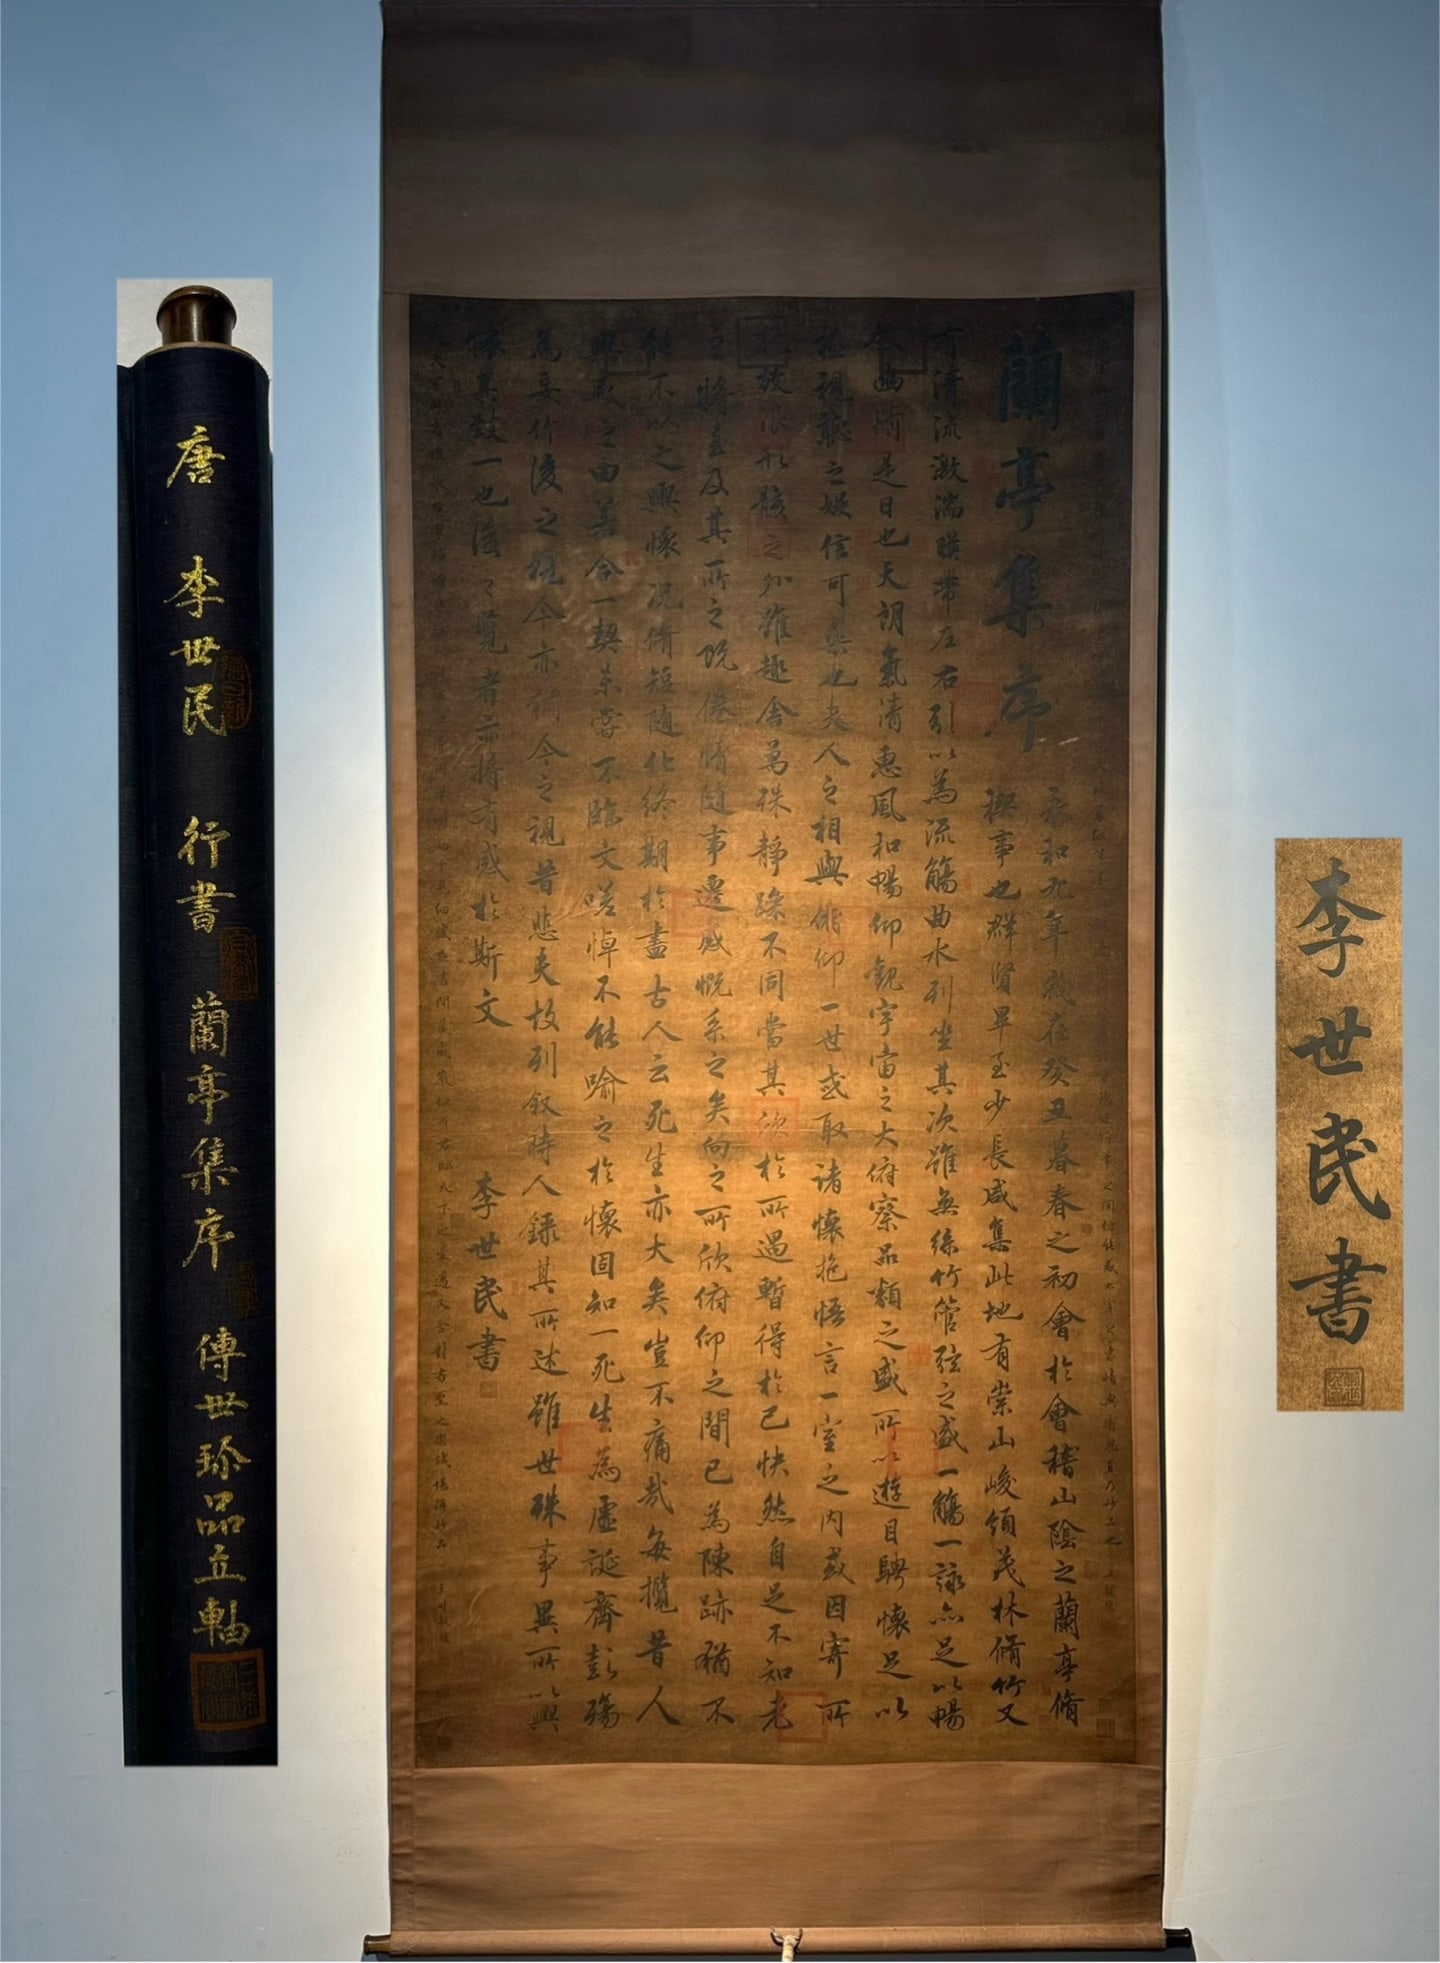 唐 李世民 行書 蘭亭集序 傳世珍品立軸
蘭亭集序
永和九年歲在癸丑暮春之初會於會稽山陰之蘭亭脩
禊事也群賢畢至少長咸集此地有崇山峻領茂林脩竹又
有清流激湍暎帶左右引以為流觴曲水列坐其次雖無絲竹管弦之盛一觴一詠亦足以暢
敘幽情是日也天朗氣清惠風和暢仰觀宇宙之大俯察品類之盛所以遊目騁懷足以
極視聽之娛信可樂也夫人之相與俯仰一世或取諸懷抱悟言一室之内或因寄所
託放浪形骸之外雖趣舍萬殊靜躁不同當其欣於所遇暫得於己快然自足不知老
之將至及其所之既倦情隨事遷感慨系之矣向之所欣俯仰之間已為陳跡猶不
能不以之興懷況脩短隨化終期於盡古人云死生亦大矣豈不痛哉每攬昔人
興感之由若合一契未嘗不臨文嗟悼不能喻之於懷固知一死生為虛誕齊彭殤
為妄作後之視今亦猶今之視昔悲夫故列叙時人錄其所述雖世殊事異所以興
懷其致一也後之覽者亦將有感於斯文 李世民書
李世民書